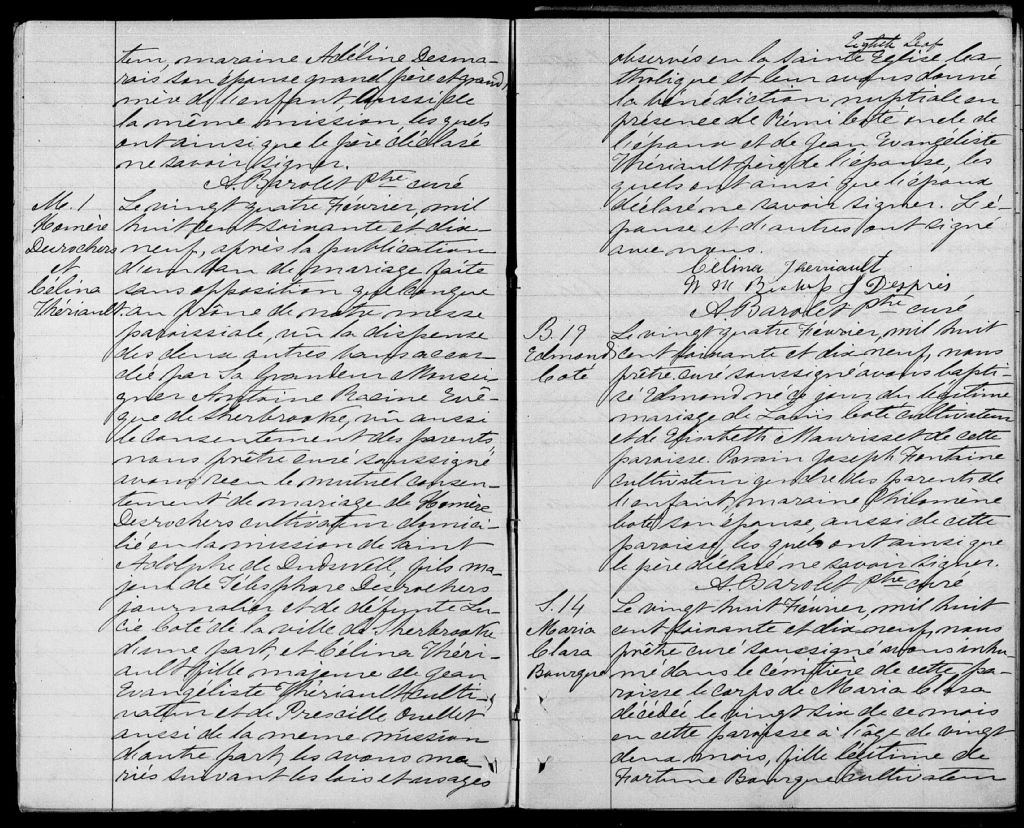 tem, maraine Adéline Desma-
rais son épouse grand père et grand,
mère de l'enfant aussi de
la même mission les quels
ont ainsi que le père déclaré
ne savoir signer.
A. Barolet Ptre curé
M. 1
Homère
Desrochers
et
Célina
Thériault
Le vingt quatre Février, mil
huit cent soixante et dix-
neuf, après la publication
d'un ban de mariage faite
sans opposition quelconque
au prône de notre messe
paroissiale, vû la dispense
des deux autres bans accor-
dée par Sa Grandeur Monsei-
gneur Antoine Racine Evê-
que de Sherbrooke, vû aussi
le consentement des parents
nous prêtre curé soussigné
avons recu le mutuel consen-
tement de mariage de Homère
Desrochers cultivateur domici-
lié en la mission de Saint
Adolphe de Dudswell, fils ma-
jeur de Télesphore Desrochers
journalier et de défunte Lu-
cie Coté de la ville de Sherbrooke
d'une part, et Célina Théri-
ault fille majeure de Jean
Evangéliste Thériault culti-
vateur et de Prescille Ouellet
aussi de la meme mission
d'autre part, les avons ma-
riés suivant les lois et usages
Eighth Leaf
observés en la Sainte Eglise Ca-
tholique et leur avons donné
la bénédiction nuptiale en
présence de Rémi Coté oncle de
l'époux et de Jean Evangéliste
Thériault père de l'épouse, les
quels ont ainsi que l'époux
déclaré ne savoir signer. L'é-
pouse et d'autres ont signé
avec nous.
Célina Theriault
W M Bishop J Desprès
A. Barolet Ptre curé
B. 19
Edmond
Coté
Le vingt quatre Février, mil huit
cent soixante et dix neuf, nous
prêtre curé soussigné avons bapti-
sé Edmond né ce jour du légitime
mariage de Louis Coté cultivateur
et de Elisabeth Maurisset de cette
paroisse. Parain Joseph Fontaine
cultivateur gendre des parents de
l'enfant, maraine Philomène
Coté son épouse, aussi de cette
paroisse, les quels ont ainsi que
le père déclaré ne savoir signer.
A. Barolet Ptre curé
S. 14
Maria
Clara
Bourque
Le vingt huit Fevrier, mil huit
cent soixante et dix neuf, nous
prêtre curé soussigné avons inhu-
mé dans le cémitière de cette pa-
roisse le corps de Maria Clara
décédée le vingt six de ce mois
en cette paroisse à l'âge de vingt
deux mois, fille légitime de
Fortune Bourque cultivateur